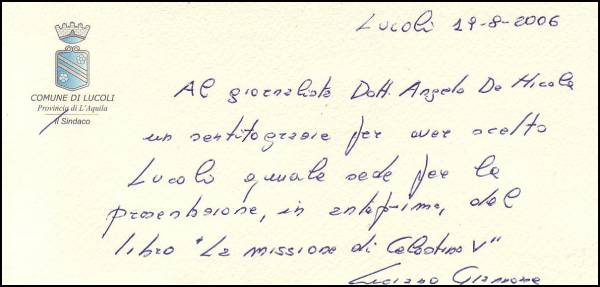 Lucoli 19-8-2006
COMUNE DI LUCOLI
Provincia di L'Aquila
Il Sindaco
Al giornalista Dott. Angelo De Nicola
un sentito grazie per aver scelto
Lucoli quale sede per la
presentazione, in anteprima, del
libro "La missione di Celestino V"
Luciano Giannone